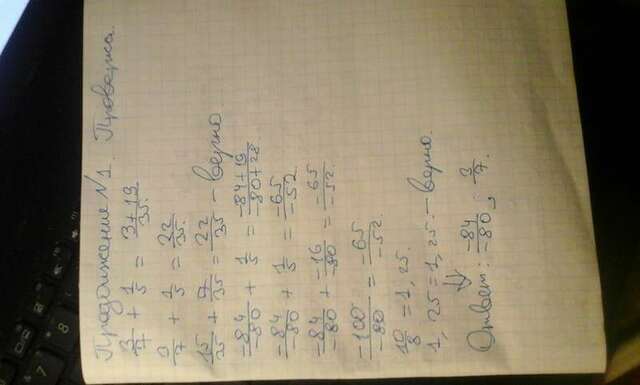 Продолжение N1. Проверка.
3/7 + 1/5 = 3+19/35.
3/7 + 1/5 = 22/35.
15/35 + 7/35 = 22/35 - верно
-84/-80 + 1/5 = -84+19/-80+28
-84/-80 + 1/5 = -65/-52.
-84/-80 + -16/-80 = -65/-52.
-100/-80 = -65/-52
10/8 = 1,25.
1,25 = 1,25. - верно.
Ответ: -84/-80; 3/7.